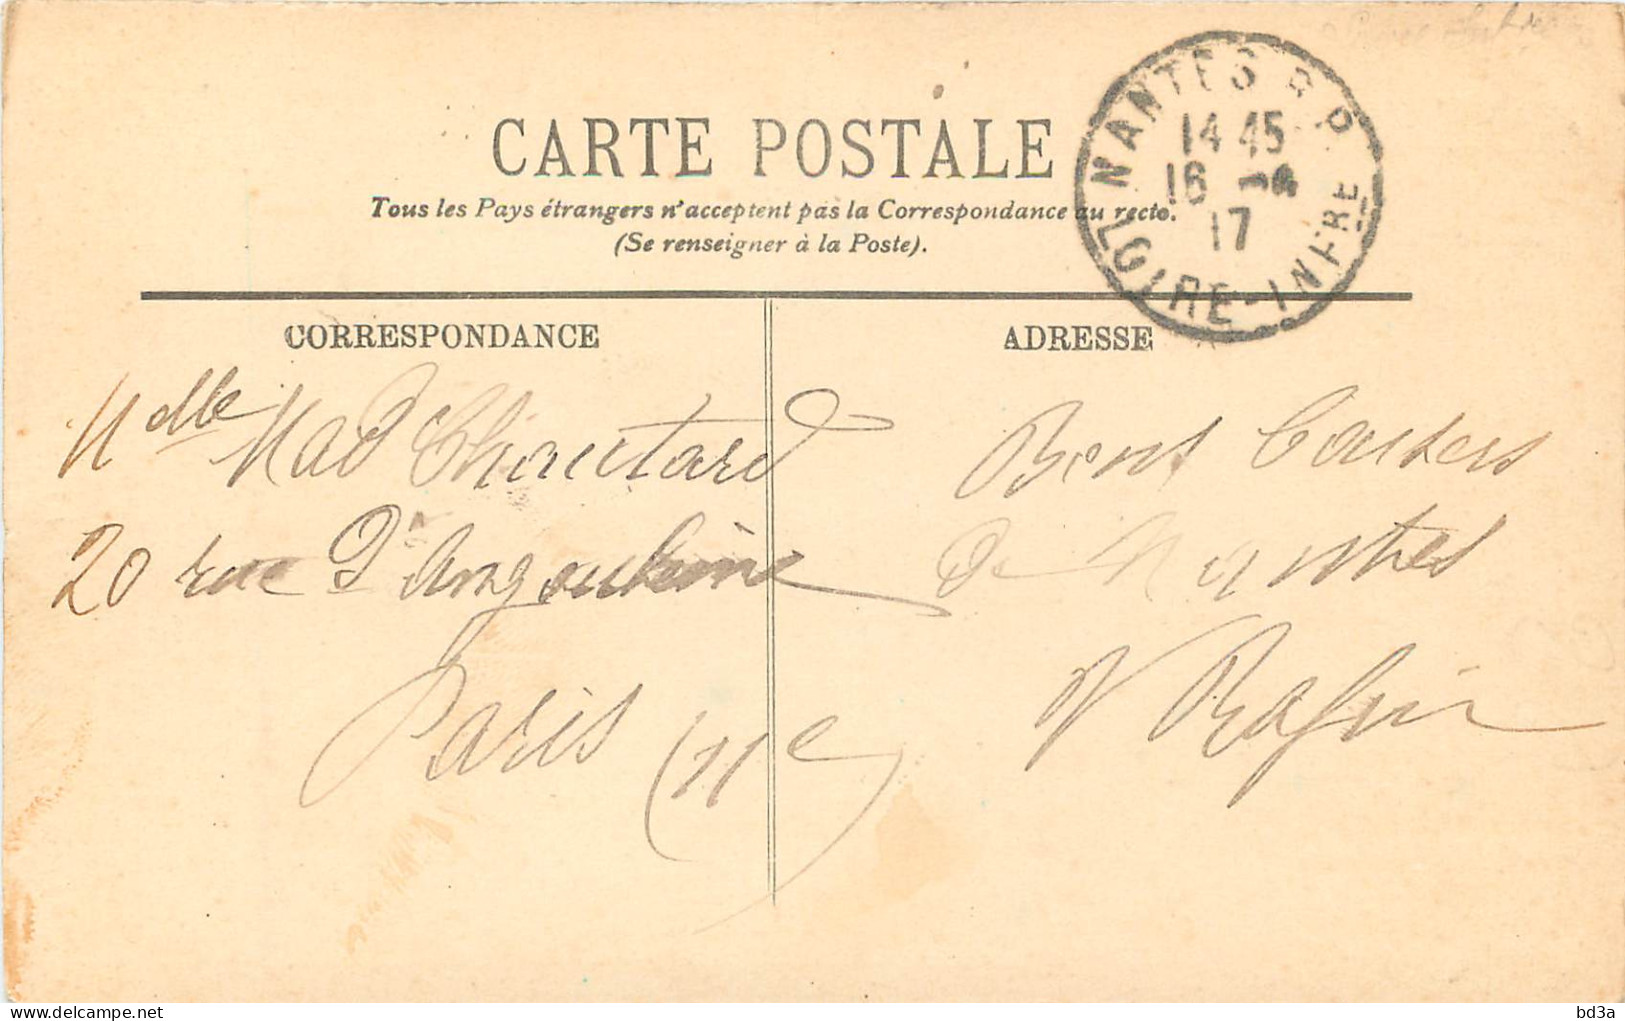 NANTES R.P.
14 45
16
17
LOIRE-INFRE
CARTE POSTALE
Tous les Pays étrangers n'acceptent pas la Correspondance au recto.
(Se renseigner à la Poste).
CORRESPONDANCE
Mdlle Mad Chautard
20 rue d'Angoulème
Paris (11e)
ADRESSE
de Nantes
bd3a